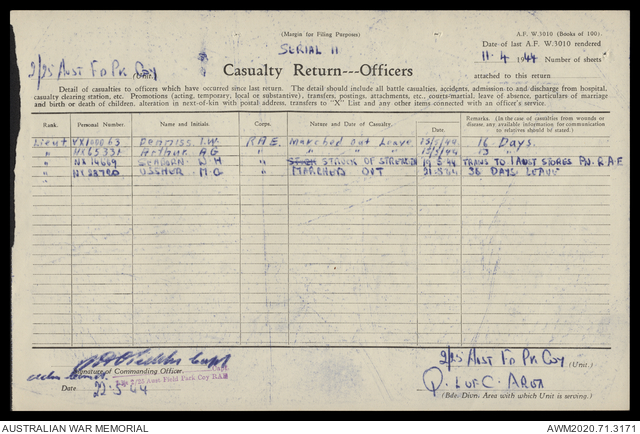 (Margin for Filing Purposes)
A.F. W.3010 (Books of 100).
SERIAL 11
Date of last A.F. W.3010 rendered
11. 4 1944 Number of sheets
2/25 Aust Fd Pk Coy (Unit)
attached to this return
Casualty Return---Officers
Detail of casualties to officers which have occurred since last return. The detail should include all battle casualties, accidents, admission to and discharge from hospital,
casualty clearing station, etc. Promotions (acting, temporary, local or substantive), transfers, postings, attachments, etc., courts-martial, leave of absence, particulars of marriage
and birth or death of children, alteration in next-of-kin with postal address, transfers to "X" List and any other items connected with an officer's service.
Rank. Personal Number. Name and Initials. Corps. Nature and Date of Casualty. Date. Remarks. (In the case of casualties from wounds or disease any available information for communication to relatives should be stated.)
Lieut VX100063 I.W. R.A.E. Marched out Leave 15/5/44. 16 Days.
" Arthur A G " " " " 15/5/44 "
" NX14669 W H " STRUCK OF 19 5 44 TRANS TO 1 AUST STORES R A E
" USSHER. M. G " MARCHED OUT 21.5.44 36 DAYS LEAVE
Capt
Signature of Commanding Officer.
2/25 Aust Field Park Coy RAE
Date 22-5-44
2/25 Aust Fd Pk Coy (Unit.)
Q. L of C. AREA
(Bde. Divn. Area with which Unit is serving.)
AUSTRALIAN WAR MEMORIAL
AWM2020.71.3171